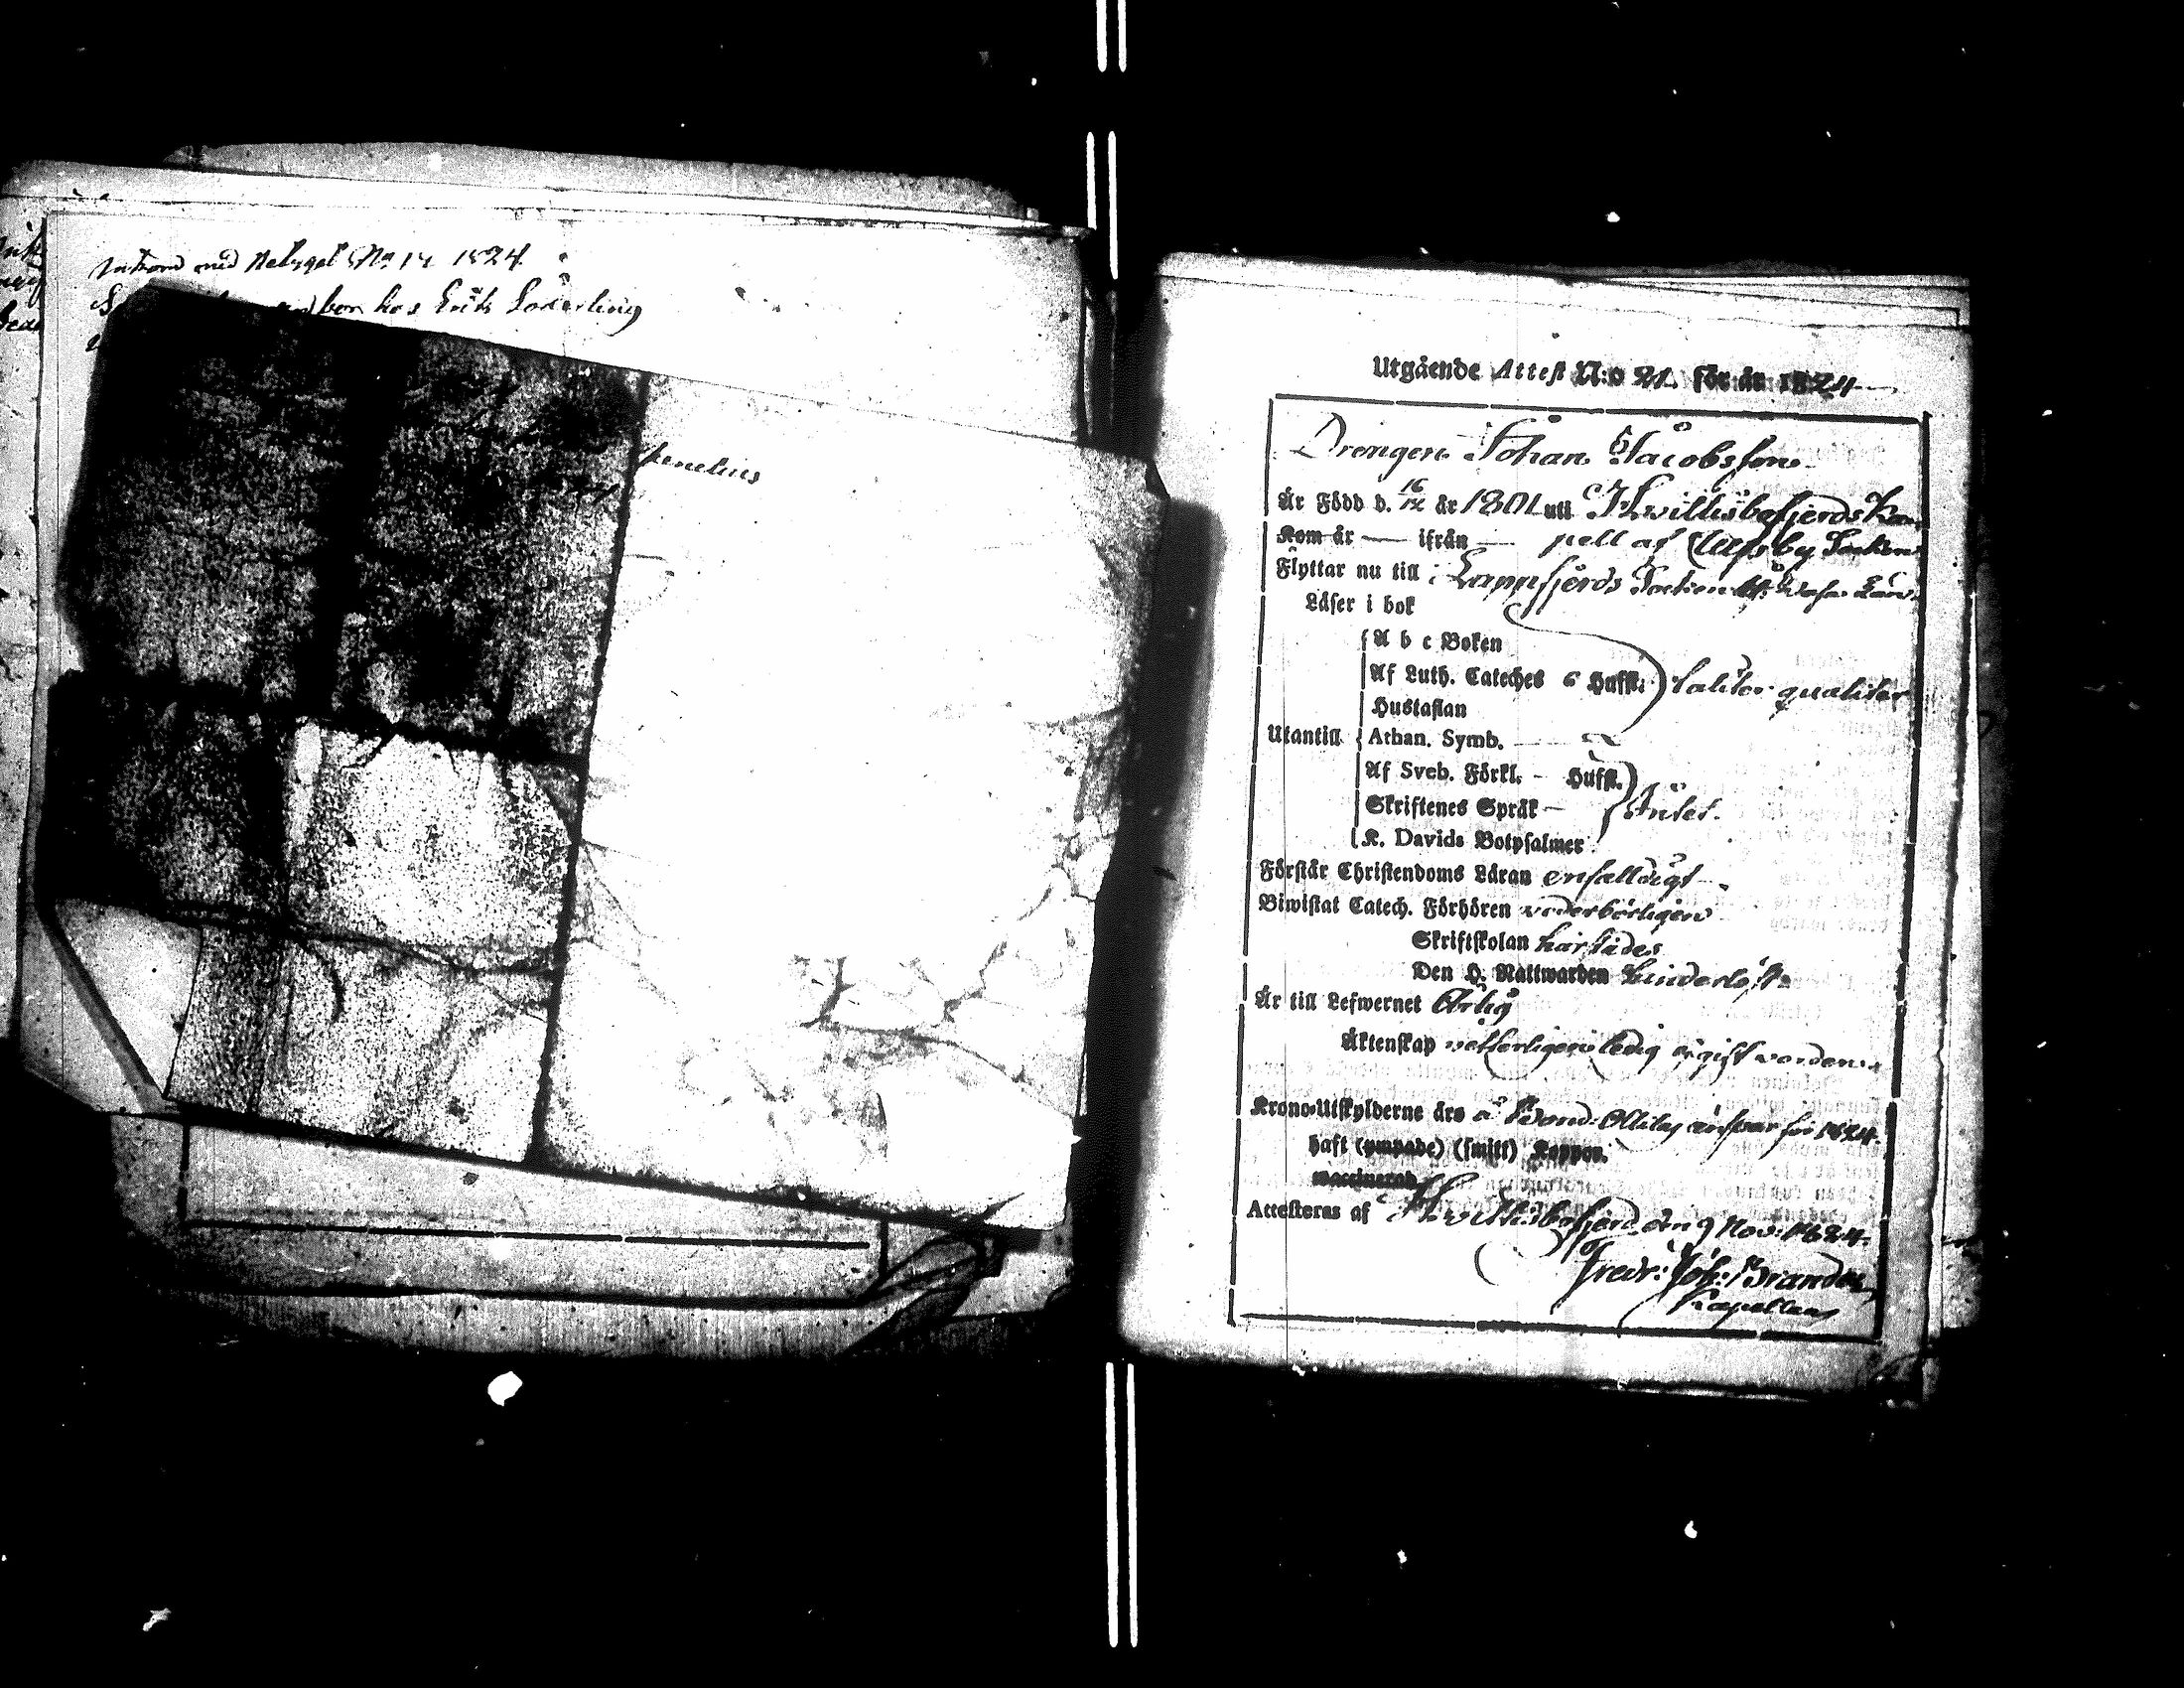 Inkom med Betyget No 14 1824.
bor hos Erik Söderling
Utgående Attest N:o 21. för år 1824
Drengen Johan Jacobsson
Är Född d. 16/12 år 1801 uti Kwillisbofjerds Ka-
Kom år — ifrån — pell af Ulfsby Socken
Flyttar nu till Lappfjerds Socken Wasa Län.
Läser i bok
A b c Boken
Af Luth. Cateches 6 Hufst. taliter qualiter
Hustaflan
Utantill Athan. Symb. —
Af Sveb. Förkl. - Hufst.
Skriftenes Språk — Intet.
K. Davids Botpsalmer
Förstår Christendoms Läran enfalldigt
Biwistat Catech. Förhören vederbörligen
Skriftskolan härstädes
Den H. Nattwarden
Är till Lefwernet Ärlig
Äktenskap vetterligen ledig ej gift worden
Krono-Utskylderne års å Bond. ansvar för 1824.
haft (ympade) (smitt) Koppor.
vaccinerad
Attesteras af Kwillisbofjerd den 9 Nov: 1824.
Fredr: Joh: Brander
Kapellan